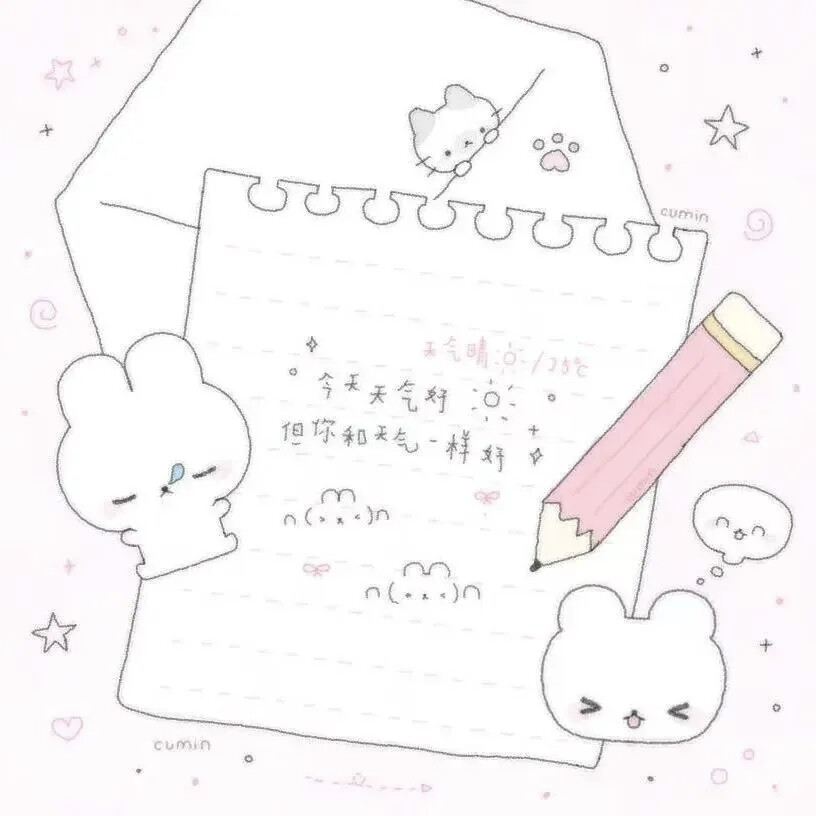 cumin
天气晴 /25℃
今天天气好
但你和天气一样好
∩(> x <)∩
∩(• x •)∩
cumin
cumin